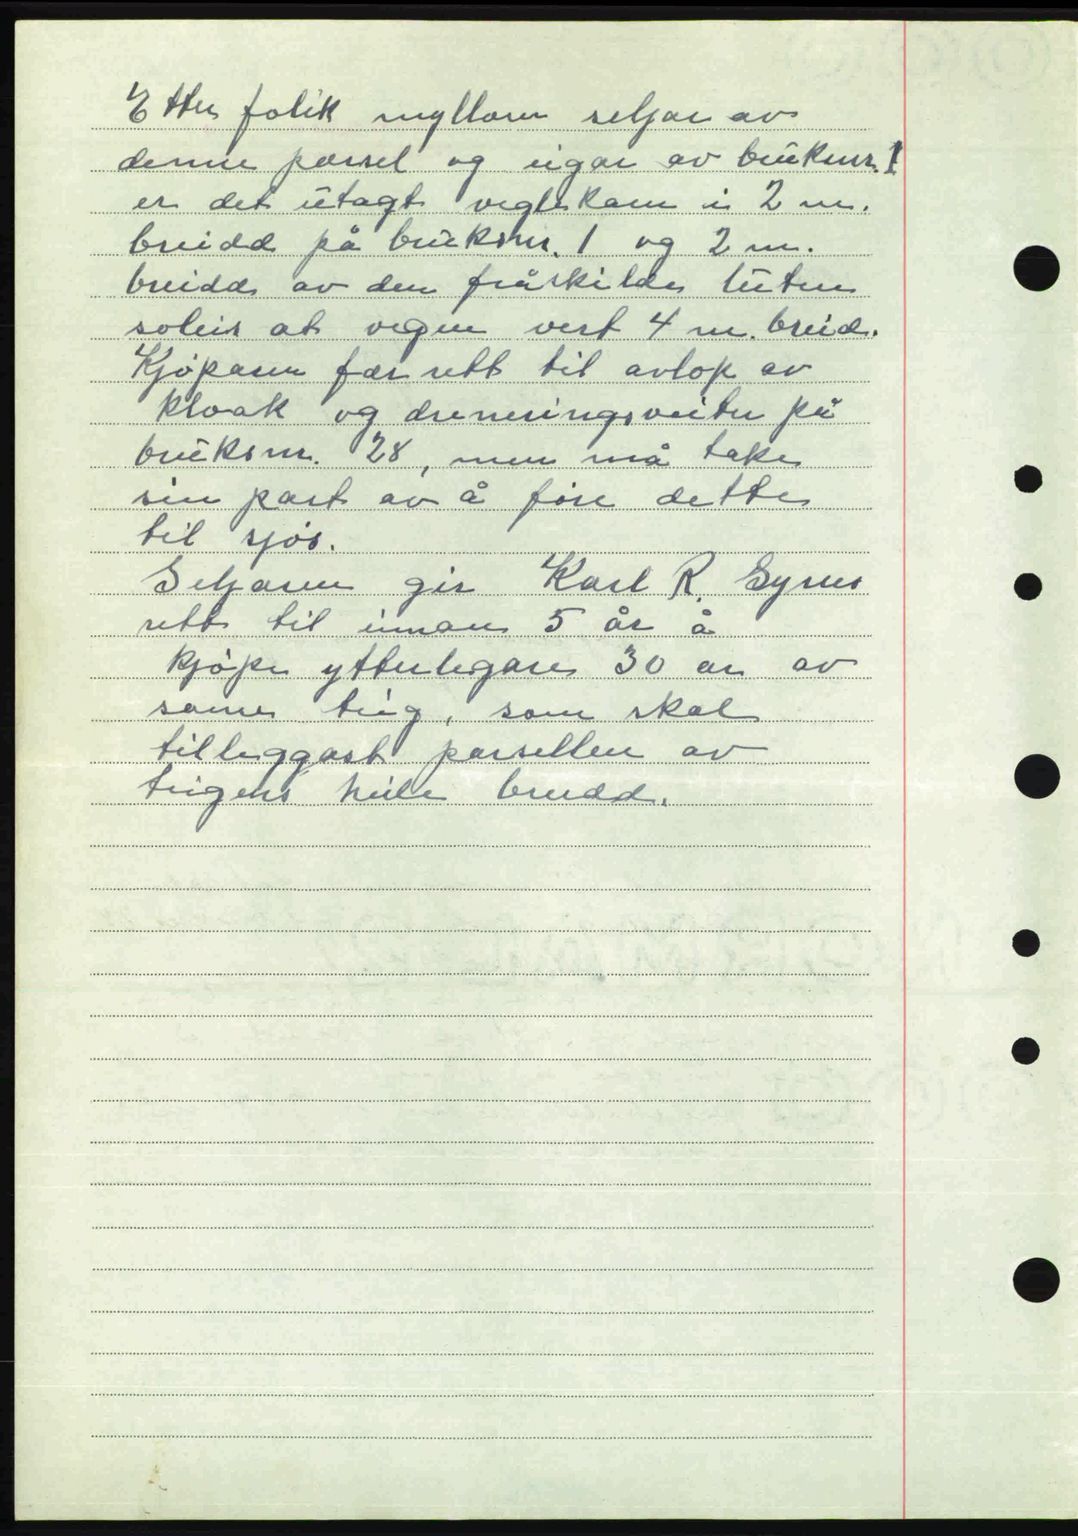 Etter folik myllom seljar av
denne parsel og eigar av bruksnr. 1
er det utagt veglskam i 2 m.
breidd på bruksnr. 1 og 2 m.
breidd av den fråskilde luten
soleis at vegen vert 4 m. breid.
Kjöparen fær rett til avlop av
kloak og dreneringsveiter på
bruksnr. 28, men må take
sin part av å före dette
til sjös.
Seljaren gir Karl R. Gyrnes
rett til innan 5 år å
kjöpe ytterlegare 30 ar av
same teig, som skal
tilleggast parsellen av
teigens heile breidd.